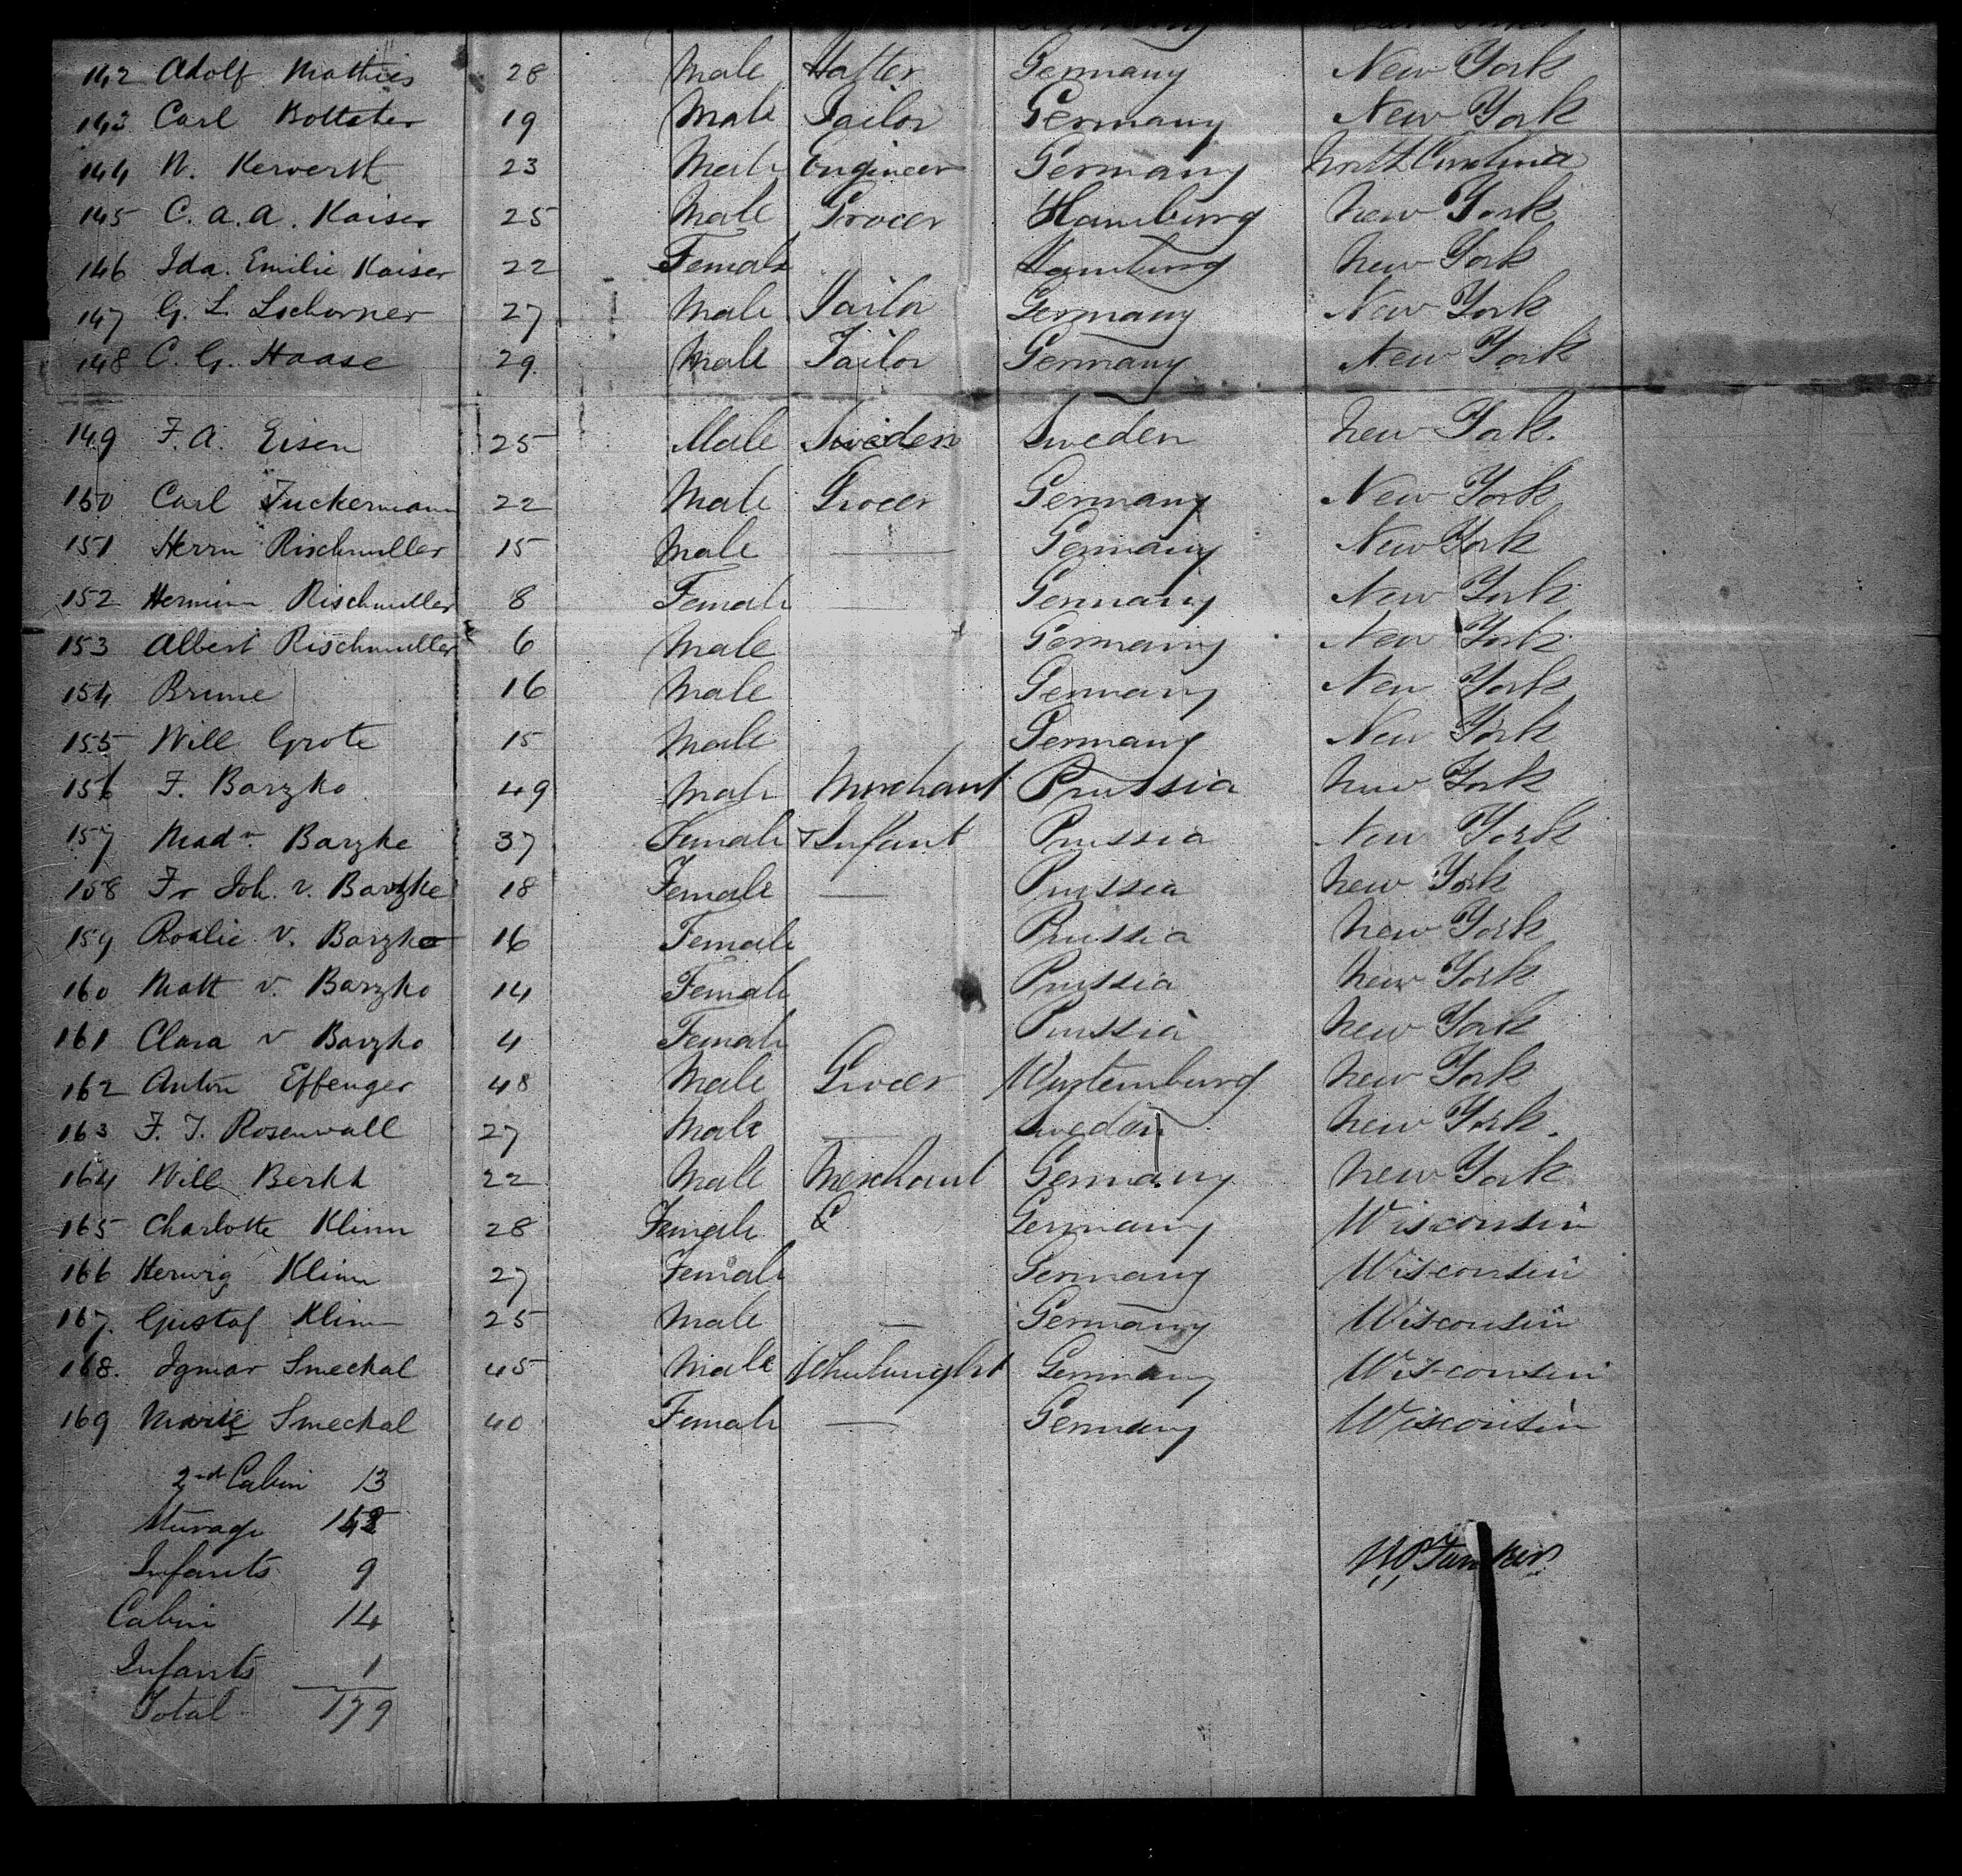 142 Adolf Mathies 28 Male Hatter Germany New York
143 Carl Male Tailor 19 Germany New York
144 N. 23 Male Engineer Germany North Carolina
145 C. A. A. Kaiser 25 Male Grocer Hamburg New York
146 Ida. Emilie Kaiser 22 Female Hamburg New York
147 G. L. 27 Male Tailor Germany New York
148 C. G. Haase 29. Male Tailor Germany New York
149 F. A. Eisen 25 Male Sweden Sweden New York.
150 Carl Tuckermann 22 Male Grocer Germany New York
151 Herrn Rischmuller 15 Male — Germany New York
152 Rischmuller 8 Female — Germany New York
153 Albert Rischmuller 6 Male Germany New York
154 Brune 16 Male Germany New York
155 Will Grote 15 Male Germany New York
156 F. Barzko 49 Male Merchant Prussia New York
157 Mad v. Barzke 37 Female & Infant Prussia New York
158 Fr Joh. v. Barzke 18 Female — Prussia New York
159 Roalie v. Barzko 16 Female Prussia New York
160 Matt v. Barzko 14 Female Prussia New York
161 Clara v Barzko 4 Female Prussia New York
162 Anton Effenger 48 Male Grocer Wurtemburg New York
163 F. J. Rosenwall 27 Male — Sweden New York.
164 Will Berkh 22 Male Merchant Germany New York
165 Charlotte Klimm 28 Female Germany Wisconsin
166 Herwig Klimm 27 Female Germany Wisconsin
167. Gustaf Klimm 25 Male — Germany Wisconsin
168. Igmar Smeckal 45 Male Germany Wisconsin
169 Marie Smeckal 40 Female — Germany Wisconsin
2nd Cabin 13
Sturage
Infants 9
Cabin 14
Infants 1
Total 179